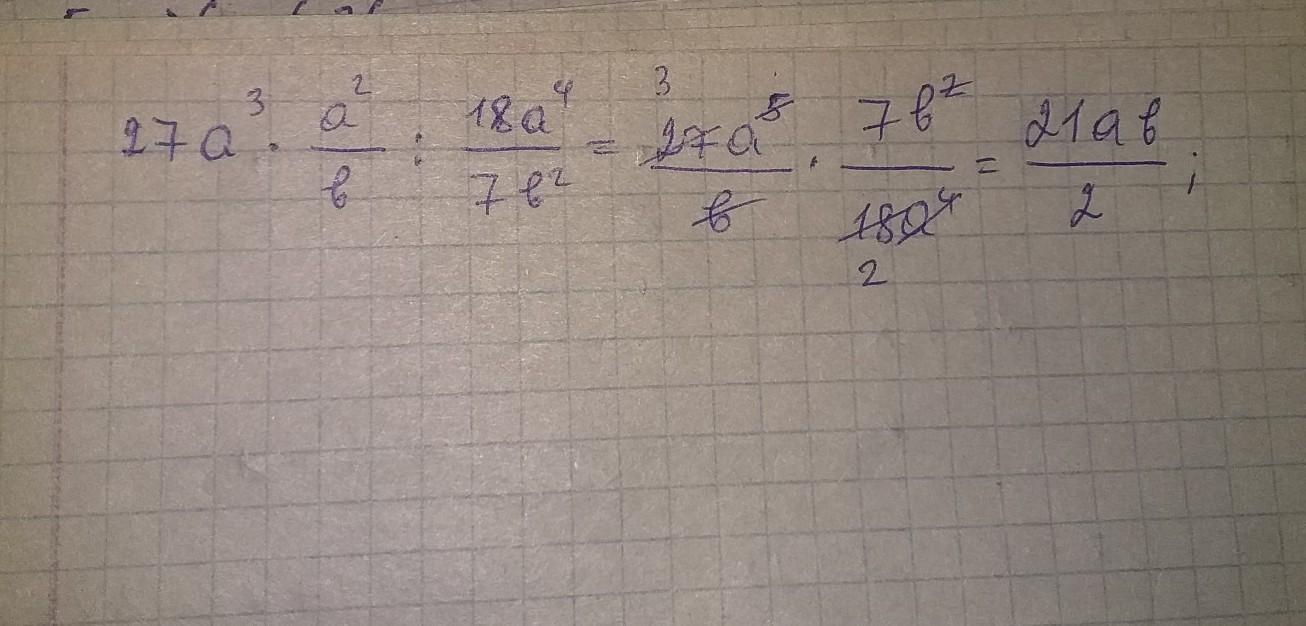 27a³ · a²/b : 18a⁴/7b² = 27a⁵/b · 7b²/18a⁴ = 21ab/2 ;
3
2